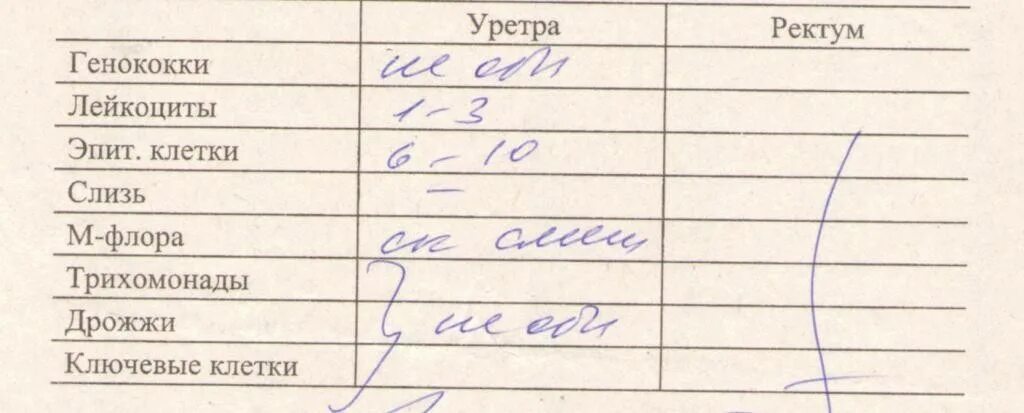 Уретра Ректум
Генококки не обн
Лейкоциты 1-3
Эпит. клетки 6-10
Слизь –
М-флора ск смеш
Трихомонады
Дрожжи не обн
Ключевые клетки